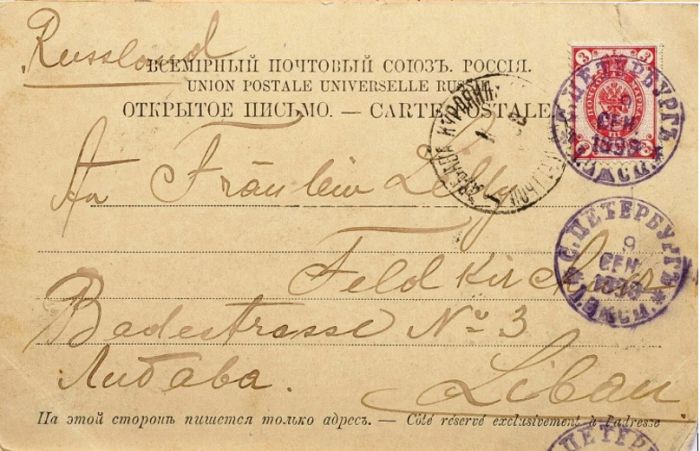 Russland
ВСЕМІРНЫЙ ПОЧТОВЫЙ СОЮЗЪ. РОССІЯ.
UNION POSTALE UNIVERSELLE RUSSIE
ОТКРЫТОЕ ПИСЬМО. — CARTE POSTALE
3 3
С. ПЕТЕРБУРГЪ
9
СЕН
1899
An Fräulein Lelly
С. ПЕТЕРБУРГЪ
9
СЕН
1899
Feldkirchner
Badestrasse No 3
Либава.
Libau
На этой сторонѣ пишется только адресъ. — Côté réservé exclusivement à l'adresse
ПЕТЕРБУРГЪ